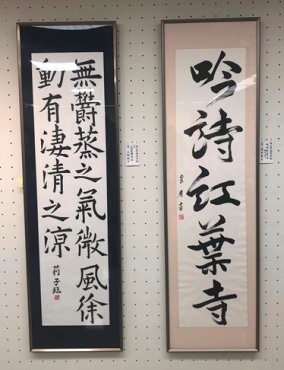 吟詩紅葉寺
無欝蒸之氣微風徐
動有淒清之凉